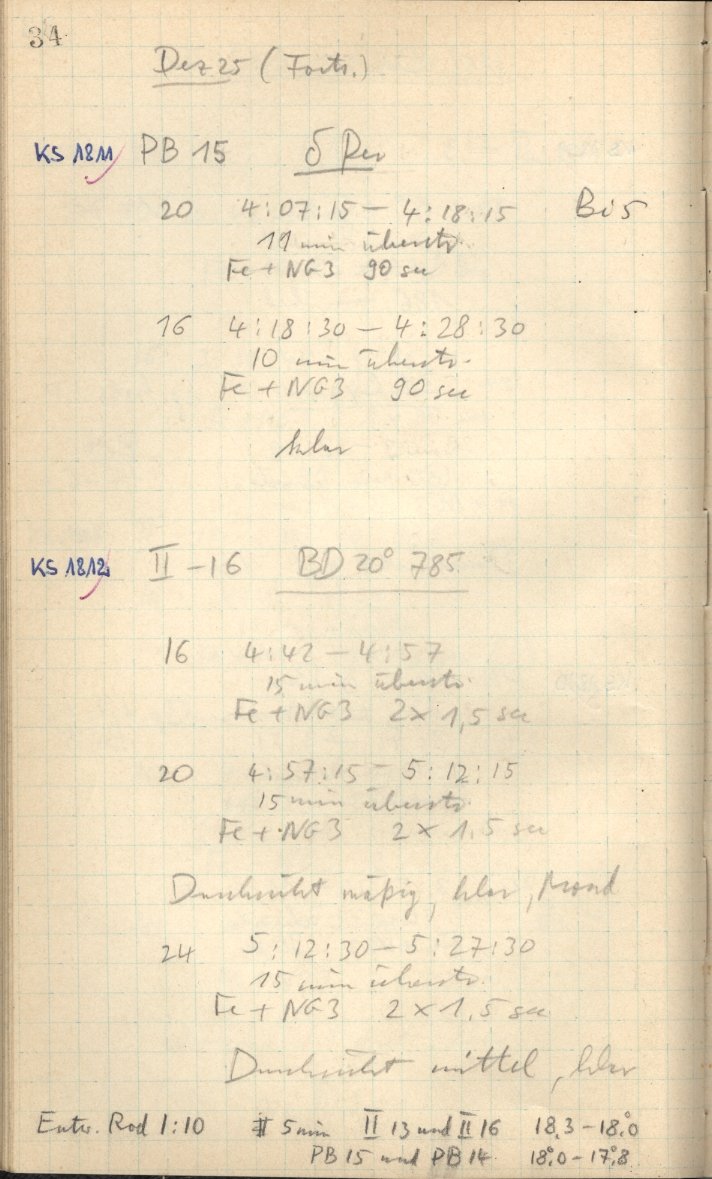 34
Dez 25 (Forts.)
KS 1811 PB 15 δ Per
20 4:07:15 — 4:18:15 Bi 5
11 min überstr.
Fe + NG3 90 sec
16 4:18:30 — 4:28:30
10 min überstr.
Fe + NG3 90 sec
klar
KS 1812 II - 16 BD 20° 785
16 4:42 — 4:57
15 min überstr.
Fe + NG3 2 x 1,5 sec
20 4:57:15 - 5:12:15
15 min überstr.
Fe + NG3 2 x 1,5 sec
Durchsicht mäßig, klar, Mond
24 5:12:30 — 5:27:30
15 min überstr.
Fe + NG3 2 x 1,5 sec
Durchsicht mittel, klar
Entw. Rod 1:10 5 min II 13 und II 16 18,3 - 18,°0
PB 15 und PB 14 18,°0 - 17,°8